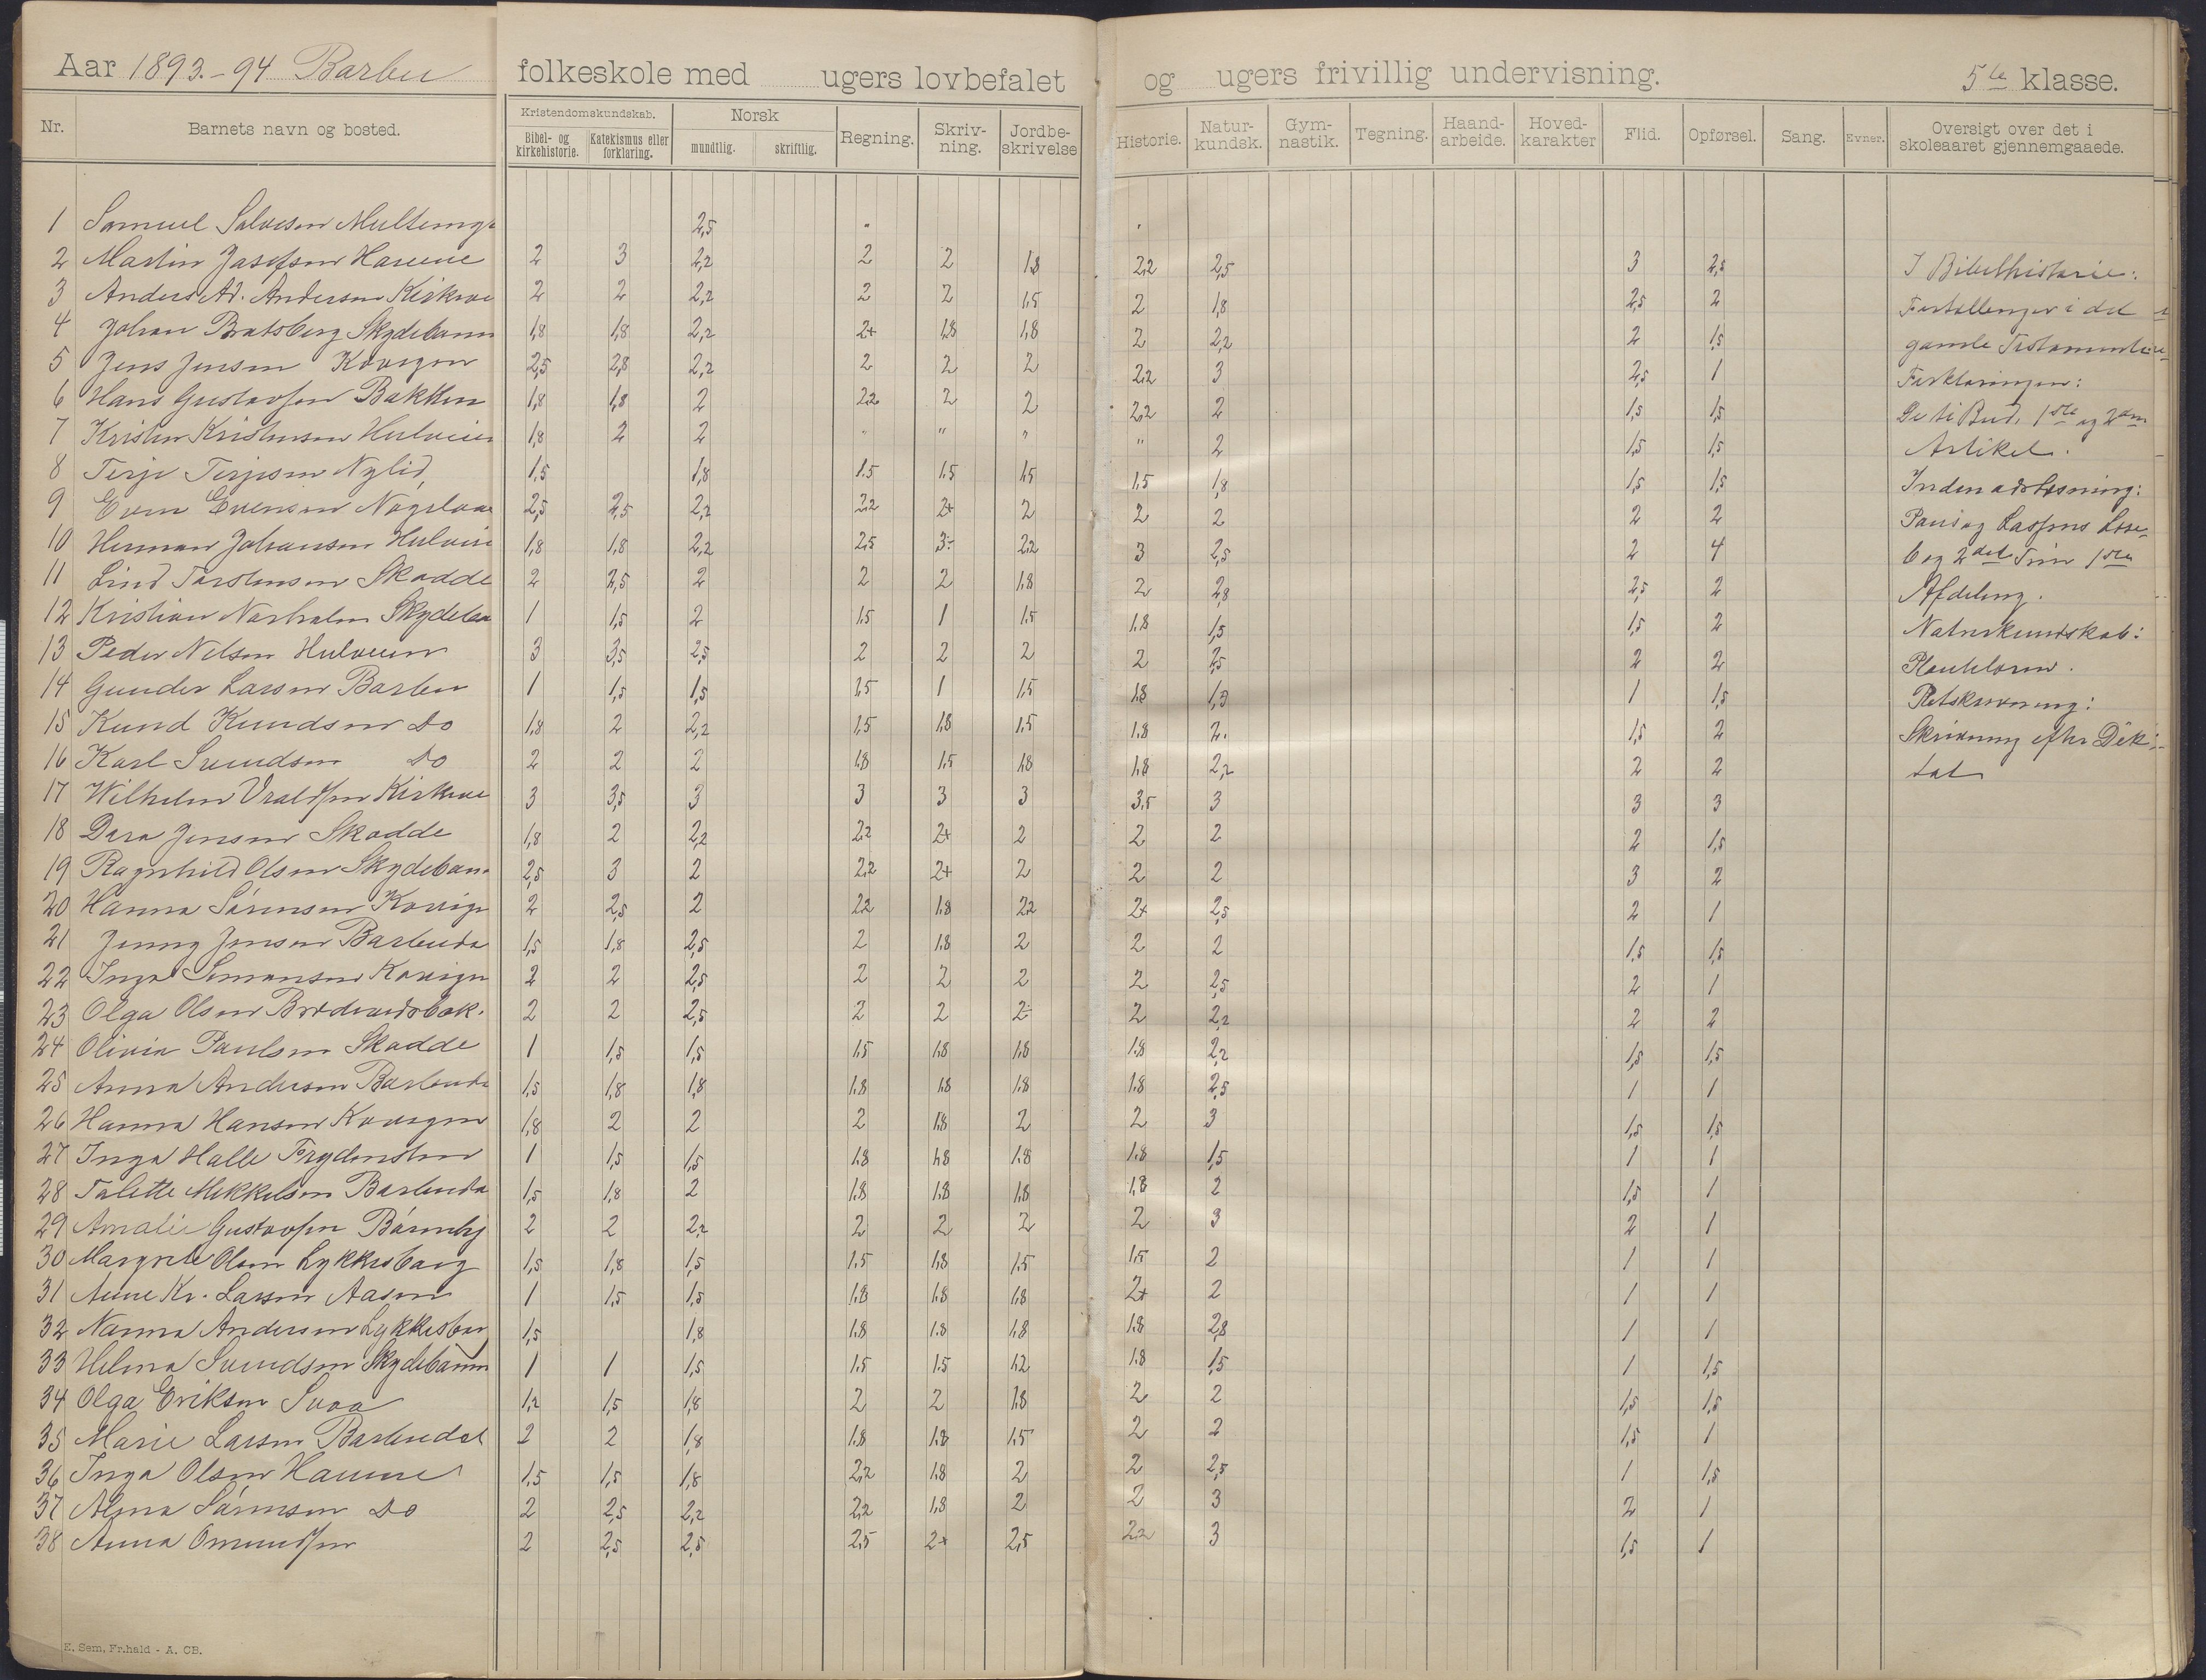 Aar 1893.-94 Barbu folkeskole med ugers lovbefalet og ugers frivillig undervisning. 5te klasse.
Nr. Barnets navn og bosted. Kristendomskundskab. Norsk Regning. Skriv-ning. Jordbe-skrivelse Historie. Natur-kundsk. Gym-nastik. Tegning. Haand-arbeide. Hoved-karakter Flid. Opførsel. Sang. Evner. Oversigt over det i skoleaaret gjennemgaaede.
Bibel- og kirkehistorie. Katekismus eller forklaring. mundtlig. skriftlig.
1 Samuel Salvesen 2,5
2 Martin Josefsen Havene 2 3 2,2 2 2 1.8 2,2 2,5 3 2,5 I Bibelhistorie:
3 Anders Ad. Andersen Kirkeve 2 2 2,2 2 2 1.5 2 1,8 2,5 2 Fortællinger i det
4 Johan Bratsberg Skydebann 1,8 1,8 2,2 2+ 1.8 1.8 2 2,2 2 1,5 gamle Testamente
5 Jens Jensen 2,5 2,8 2,2 2 2 2 2.2 3 2,5 1 Forklaringen:
6 Hans Gustavsen Bakken 1,8 1,8 2 2.2 2 2 2,2 2 1,5 1,5 De ti Bud. 1ste og 2den
7 Kristen Kristensen Hulveien 1,8 2 2 " " " " 2 1,5 1,5 Artikel.
8 Terje Terjesen Nylid 1,5 1,8 1.5 1.5 1.5 1.5 1,8 1,5 1,5 Indenadslæsning:
9 Even Evensen 2,5 2,5 2,2 2.2 2+ 2 2 2 2 2 Pausog Lassens Læse-
10 Herman Johansen Hulveie 1,8 1,8 2,2 2.5 3÷ 2.2 3 2,5 2 4 bog 2det Trin 1ste
11 Lind Torstensen Skadde 2 2,5 2 2 2 1.8 2 2,8 2,5 2 Afdeling.
12 Kristian Skydeba 1 1,5 2 1.5 1 1.5 1.8 1,5 1,5 2 Naturkundskab:
13 Peder Nilsen Hulveien 3 3,5 2,5 2 2 2 2 2,5 2 2 Plantelæren.
14 Gunder Larsen Barbu 1 1,5 1,5 1.5 1 1.5 1.8 1,5 1 1,5 Retskrivning:
15 Knud Knudsen Do 1,8 2 2,2 1.5 1.8 1.5 1.8 2. 1,5 2 Skrivning efter Dik-
16 Karl Svendsen Do 2 2 2 1.8 1.5 1.8 1.8 2,2 2 2 tat
17 Wilhelm Kirkeve 3 3,5 3 3 3 3 3.5 3 3 3
18 Dara Jensen Skadde 1,8 2 2,2 2.2 2+ 2 2 2 2 1,5
19 Ragnhild Olsen Skydeban 2,5 3 2 2.2 2+ 2 2 2 3 2
20 Hanna Sørensen 2 2,5 2 2.2 1.8 2.2 2+ 2,5 2 1
21 Jenny Jensen Barbuda 1,5 1,8 2,5 2 1.8 2 2 2 1,5 1,5
22 Inga Simonsen 2 2 2,5 2 2 2 2 2,5 2 1
23 Olga Olsen 2 2 2,5 2 2 2÷ 2 2,2 2 2
24 Olivia Paulsen Skadde 1 1,5 1,5 1.5 1.8 1.8 1.8 2,2 1,5 1,5
25 Anna Andersen Barbuda 1,5 1,8 1,8 1.8 1.8 1.8 1.8 2,5 1 1
26 Hanna Hansen 1,8 2 2 2 1.8 2 2 3 1,5 1,5
27 Inga Halle Frydensten 1 1,5 1,5 1.8 1.8 1.8 1.8 1,5 1 1
28 Talette Mikkelsen Barbuda 1,5 1,8 2 1.8 1.8 1.8 1,8 2 1,5 1
29 Amalie Gustavsen 2 2 2,2 2 2 2 2 3 2 1
30 Margrete Olsen Lykkesborg 1,5 1,8 1,5 1.5 1.8 1.5 1.5 2 1 1
31 Anne Kr. Larsen Aasen 1 1,5 1,5 1.8 1.8 1.8 2+ 2 1 1
32 Nanna Andersen Lykkesbor 1,5 1,8 1.8 1.8 1.8 1.8 2,8 1 1
33 Helma Svendsen Skydebann 1 1 1,5 1.5 1.5 1.2 1.8 1,5 1 1,5
34 Olga Eriksen 1,2 1,5 1,8 2 2 1.8 2 2 1,5 1,5
35 Marie Larsen Barbudal 2 2 1,8 1.8 1.8 1.5 2 2 1,5 1
36 Inga Olsen Havene 1,5 1,5 1,8 2,2 1.8 2 2 2,5 1 1,5
37 Alma Sørensen Do 2 2,5 2,2 2,2 1,8 2 2 3 2 1
38 Anna Omundsen 2 2,5 2,5 2.5 2+ 2,5 2.2 3 1,5 1
E. Sem, Fr.hald - A. CB.